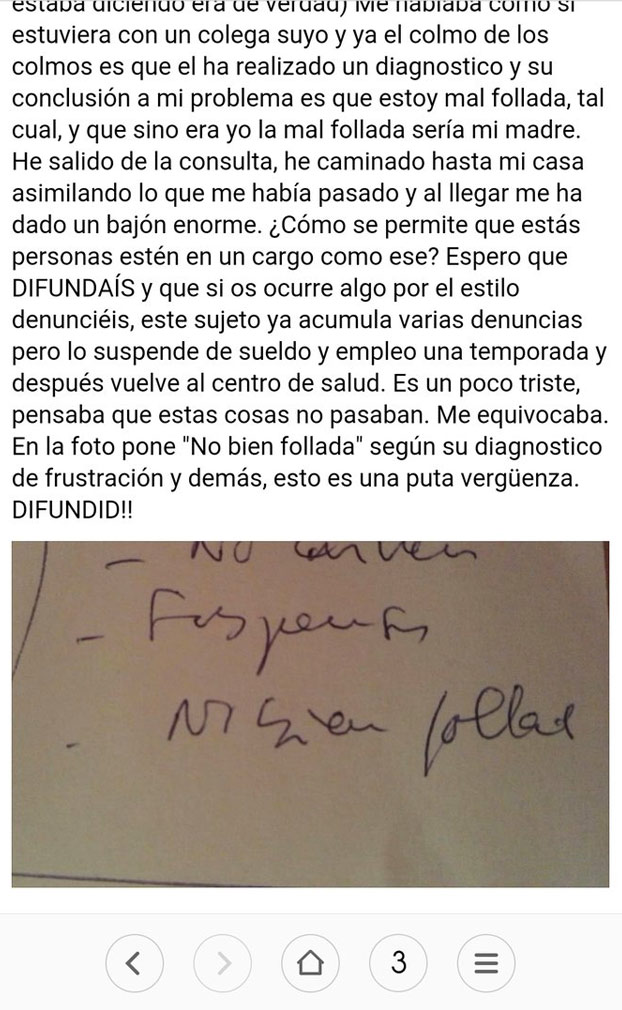 estaba diciendo era de verdad) Me hablaba como si
estuviera con un colega suyo y ya el colmo de los
colmos es que el ha realizado un diagnostico y su
conclusión a mi problema es que estoy mal follada, tal
cual, y que sino era yo la mal follada sería mi madre.
He salido de la consulta, he caminado hasta mi casa
asimilando lo que me había pasado y al llegar me ha
dado un bajón enorme. ¿Cómo se permite que estás
personas estén en un cargo como ese? Espero que
DIFUNDAÍS y que si os ocurre algo por el estilo
denunciéis, este sujeto ya acumula varias denuncias
pero lo suspende de sueldo y empleo una temporada y
después vuelve al centro de salud. Es un poco triste,
pensaba que estas cosas no pasaban. Me equivocaba.
En la foto pone "No bien follada" según su diagnostico
de frustración y demás, esto es una puta vergüenza.
DIFUNDID!!
- No
-
- bien follad
3